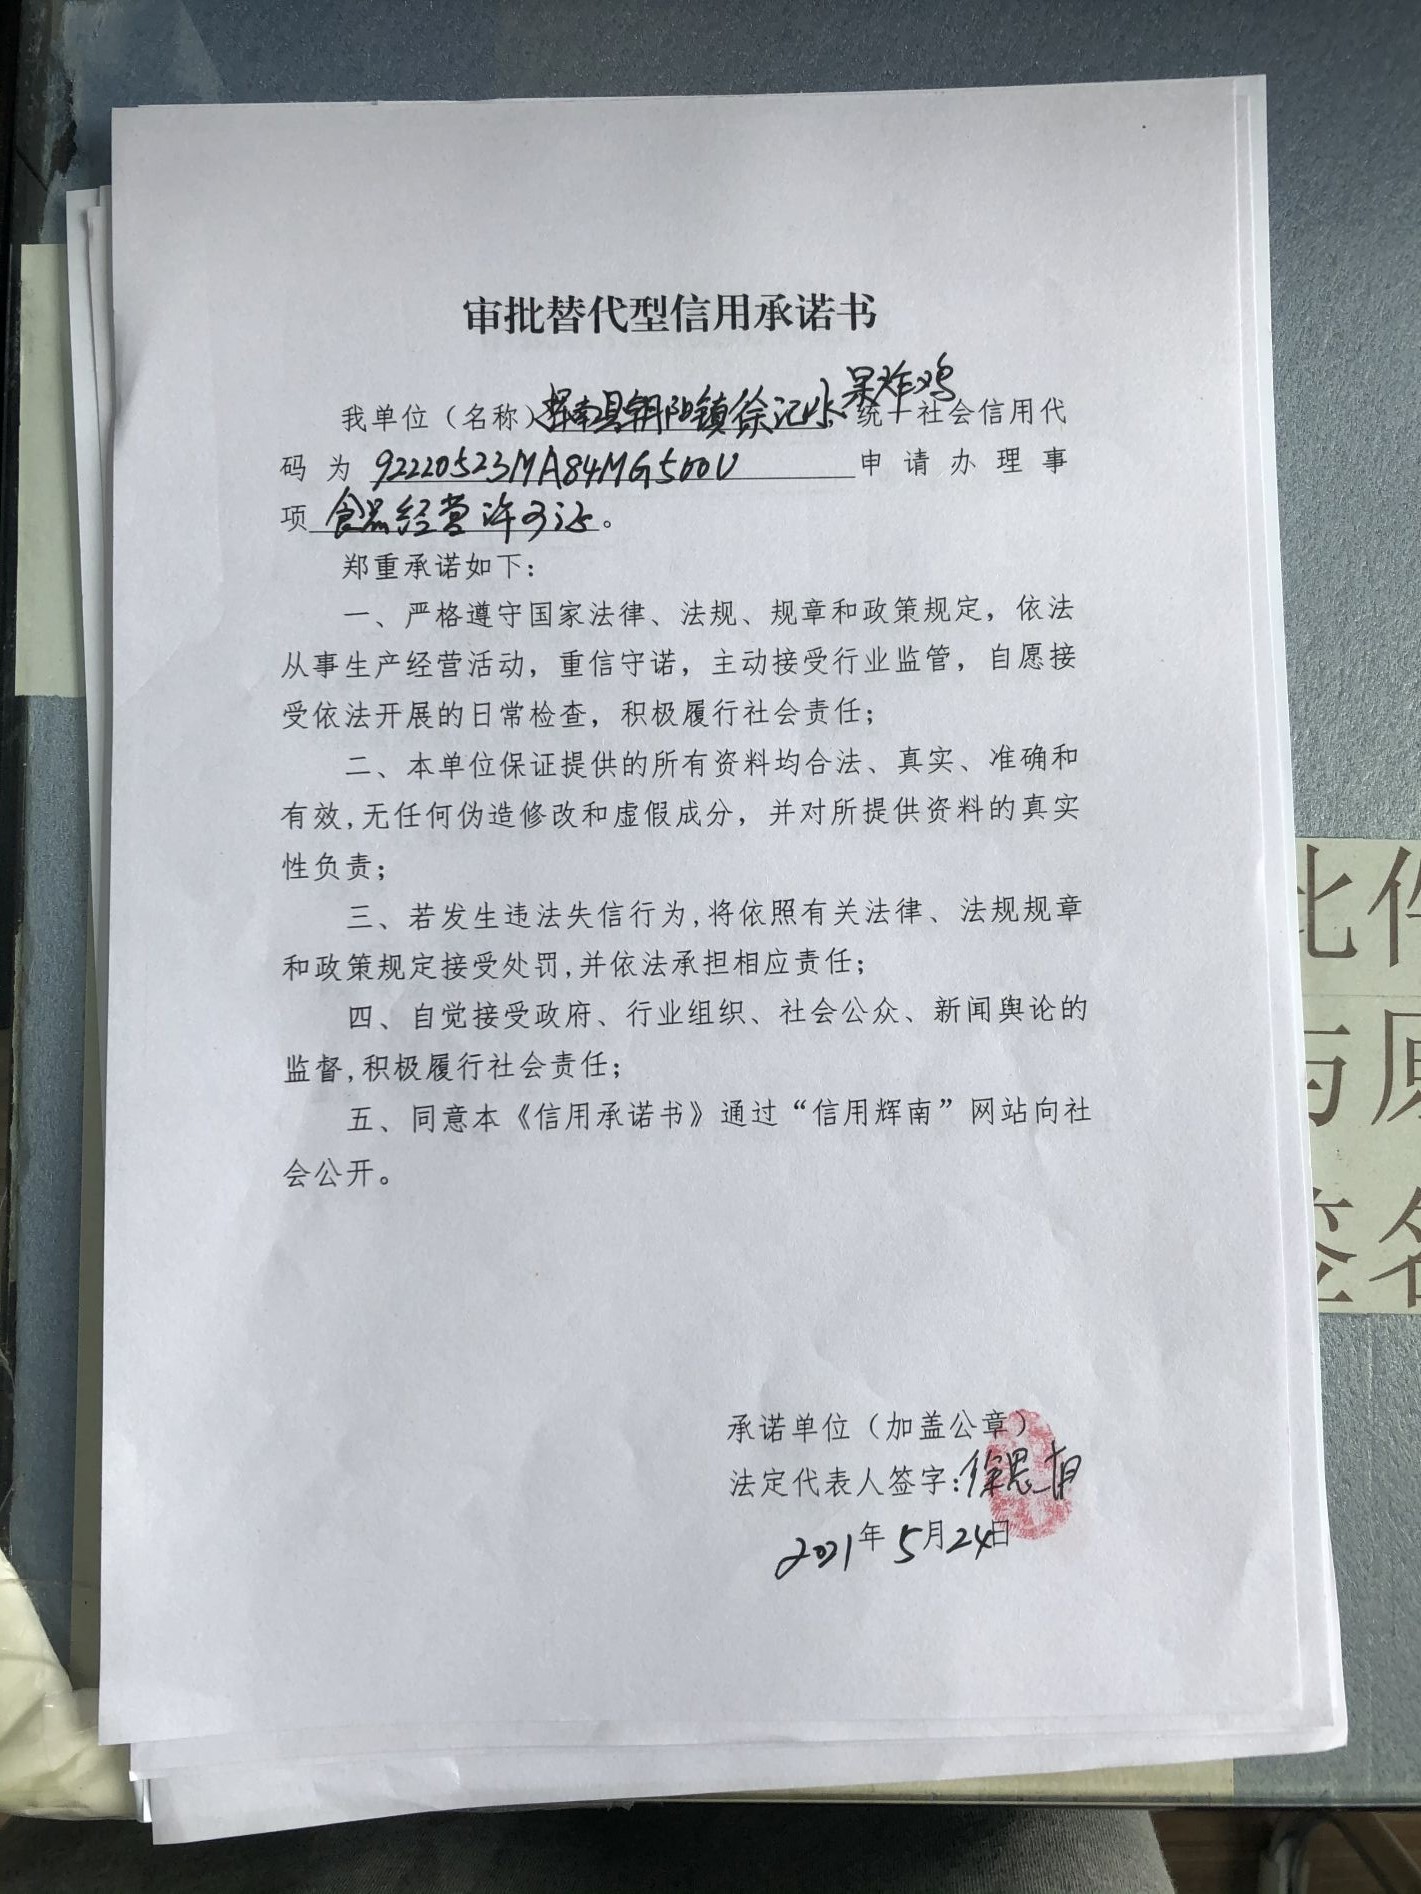 审批替代型信用承诺书
我单位（名称）辉南县朝阳镇徐记水果炸鸡 统一社会信用代
码为 92220523MA84MG500U 申请办理事
项 食品经营许可证。
郑重承诺如下：
一、严格遵守国家法律、法规、规章和政策规定，依法
从事生产经营活动，重信守诺，主动接受行业监管，自愿接
受依法开展的日常检查，积极履行社会责任；
二、本单位保证提供的所有资料均合法、真实、准确和
有效,无任何伪造修改和虚假成分，并对所提供资料的真实
性负责；
三、若发生违法失信行为,将依照有关法律、法规规章
和政策规定接受处罚,并依法承担相应责任；
四、自觉接受政府、行业组织、社会公众、新闻舆论的
监督,积极履行社会责任；
五、同意本《信用承诺书》通过“信用辉南”网站向社
会公开。
承诺单位（加盖公章）
法定代表人签字：徐思
2021年5月24日
此件
与原
签名